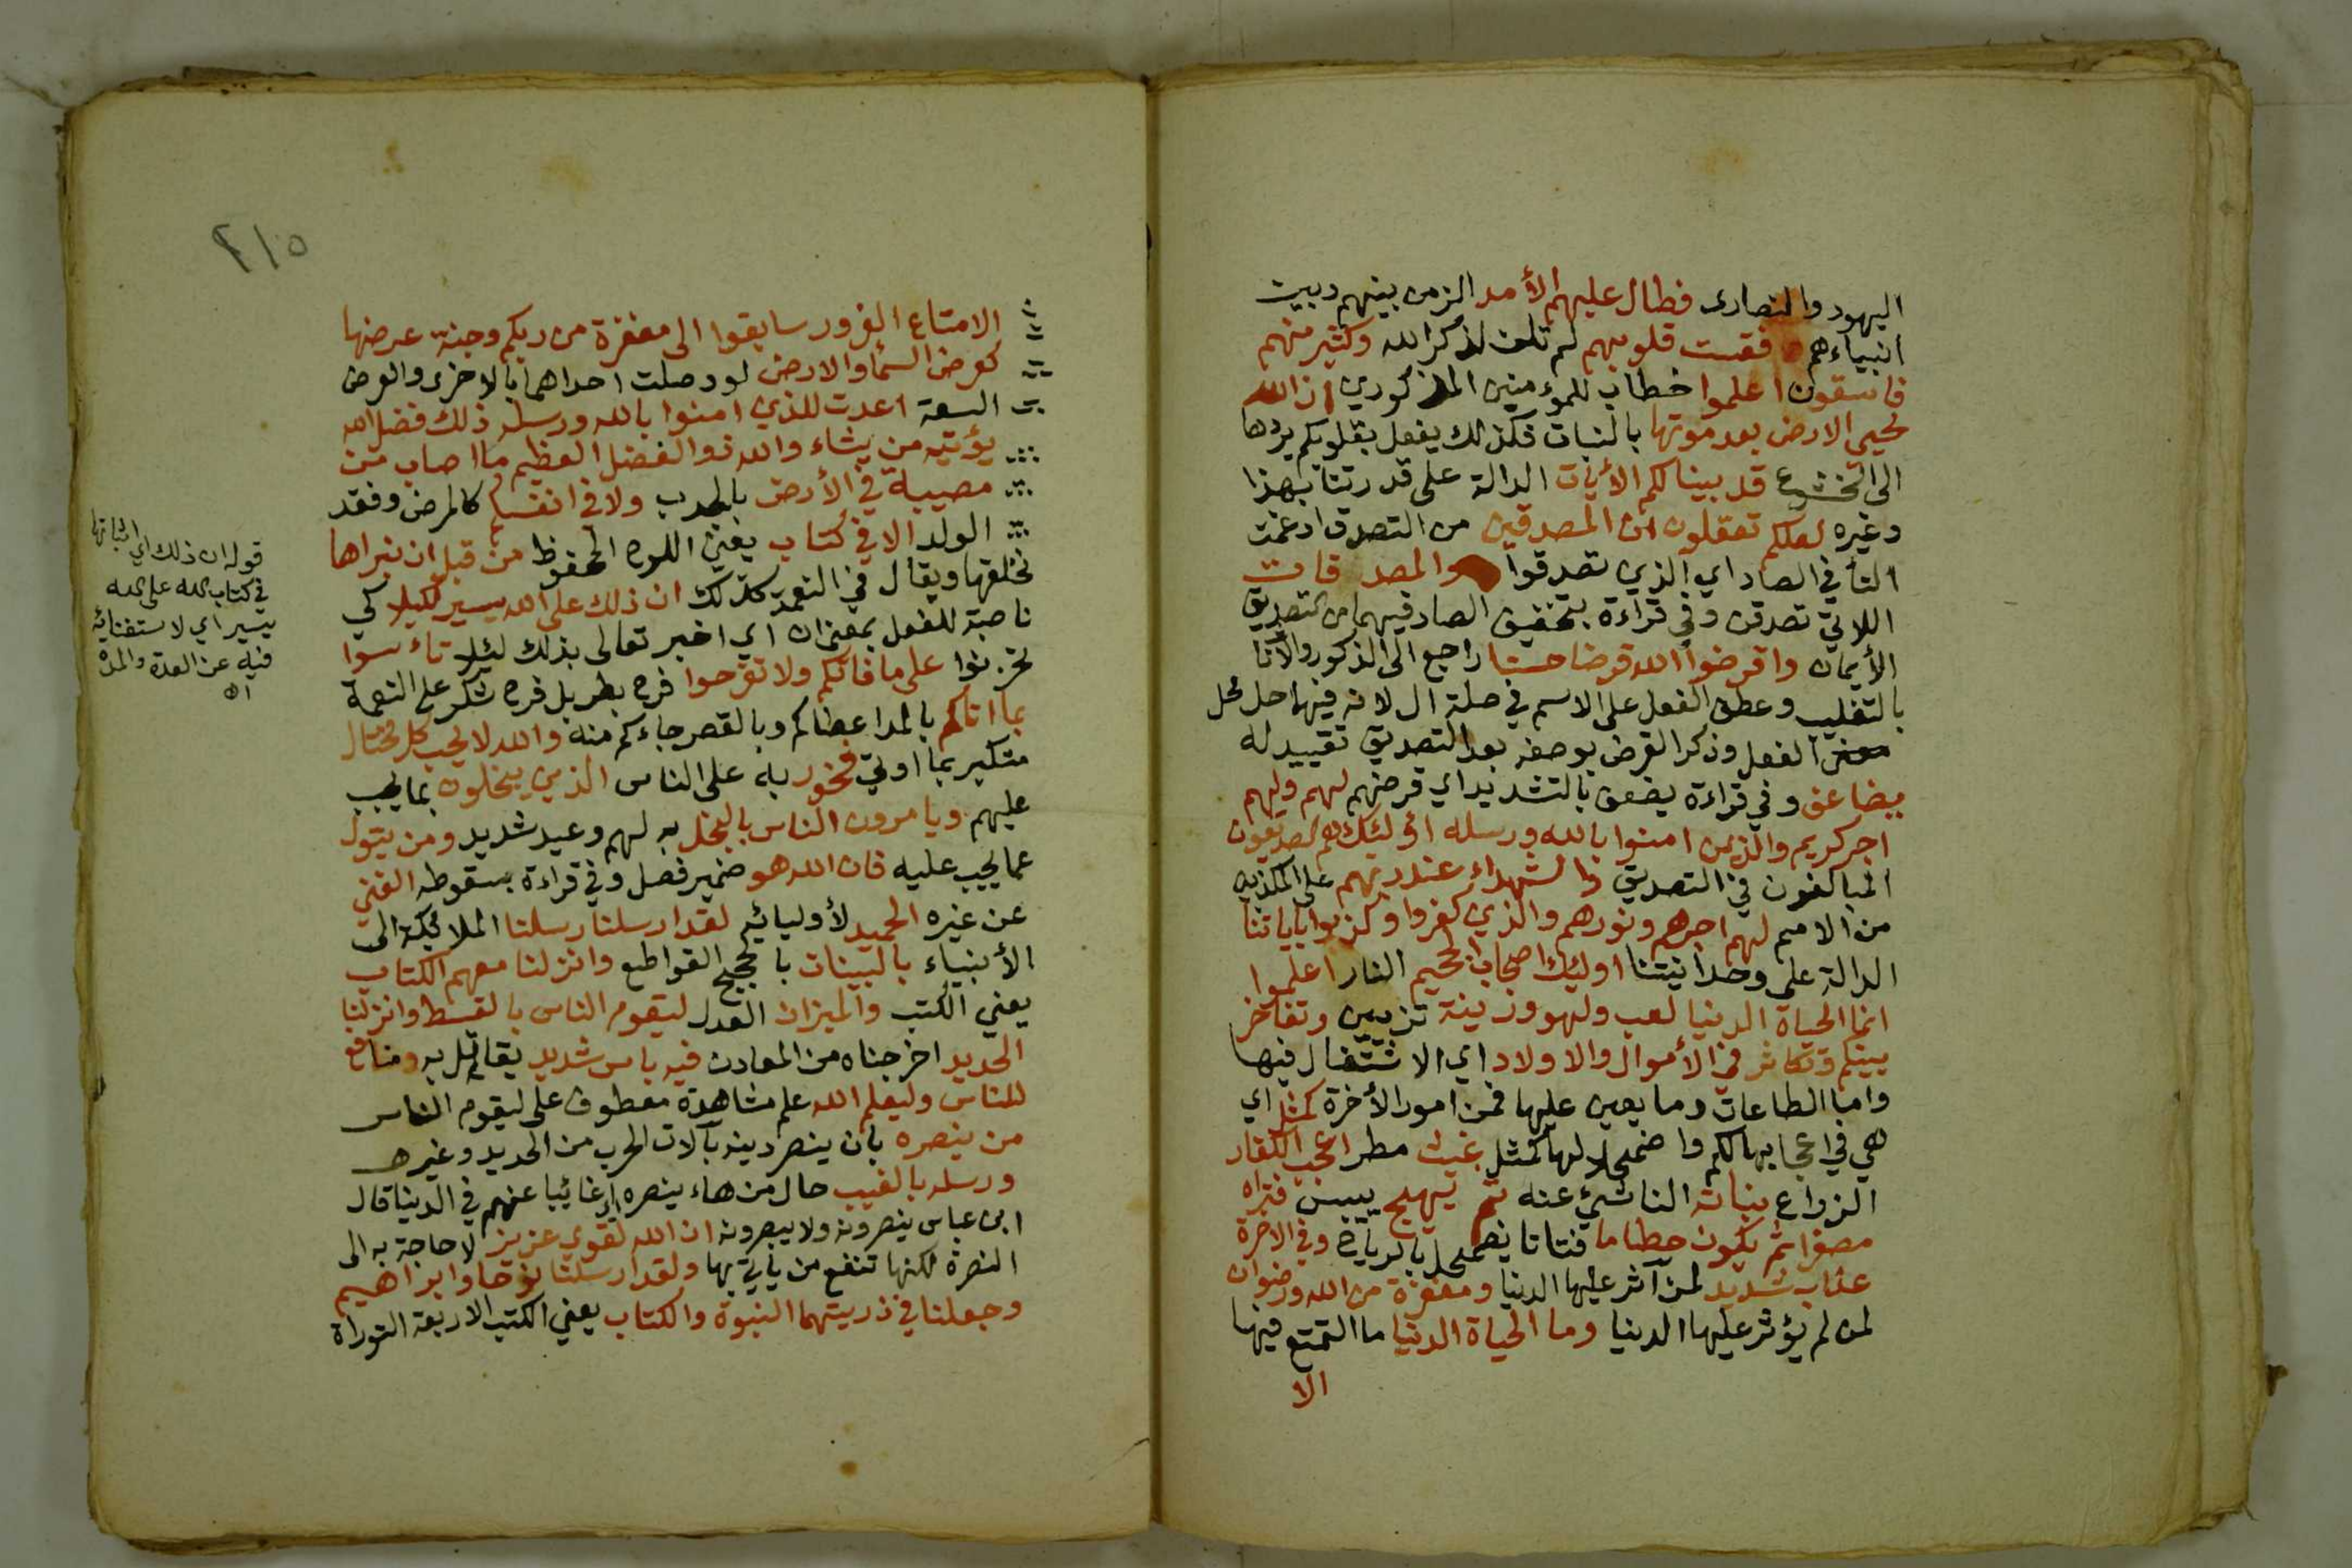 اليهود والنصارى فطال عليهم الأمد الزمن بينهم وبين
انبياءهم فقست قلوبهم لم تلن لذكر الله وكثير منهم
فاسقون اعلموا خطاب للمؤمنين المذكورين ان الله
يحيى الارض بعد موتها بالنبات فكذلك يفعل بقلوبكم يردها
الى الخشوع قد بينا لكم الأيات الدالة على قدرتنا بهذا
وغيره لعلكم تعقلون ان المصدقين من التصدق ادغمت
التأ في الصاد اي الذين تصدقوا والمصد قات
اللاتي تصدقن وفي قراءة بتخفيف الصاد فيهما من التصديق
الأيمان واقرضوا الله قرضا حسنا راجع الى الذكور والأناث
بالتغليب وعطف الفعل على الاسم في صلة ال لانه فيها حل محل
الفعل وذكر القرض بوصفه بعد التصديق تقييد له
يضاعف وفي قراءة يضعف بالتشديد اي قرضهم لهم ولهم
اجر كريم والذين امنوا بالله ورسله اولئك هم الصديقون
المبالغون في التصديق والشهداء عند ربهم على المكذبين
من الامم لهم اجرهم ونورهم والذين كفروا وكذبوا باياتنا
الدالة على وحدانيتنا اوليك اصحاب الجحيم النار اعلموا
انما الحياة الدنيا لعب ولهو وزينة تزيين وتفاخر
بينكم وتكاثر في الأموال والاولاد اي الاشتغال فيها
واما الطاعات وما يعين عليها فمن امور الأخرة كمثل اي
هي في اعجابها لكم واضمحلالها كمثل غيث مطر اعجب الكفار
الزراع نباته الناشئ عنه ثم يهيج ييبس فتراه
مصفرا ثم يكون حطاما فتاتا يضمحل بالرياح وفي الاخرة
عذاب شديد لمن آثر عليها الدنيا ومغفرة من الله ورضوان
لمن لم يؤثر عليها الدنيا وما الحياة الدنيا ما التمتع فيها
الا
٢١٥
الا متاع الغرور سابقوا الى مغفرة من ربكم وجنة عرضها
كعرض السماء والارض لو وصلت احداهما بالاخرى والعرض
السعة اعدت للذين امنوا بالله ورسله ذلك فضل الله
يؤتيه من يشاء والله ذو الفضل العظيم ما اصاب من
مصيبة في الأرض بالجدب ولا في انفسكم كالمرض وفقد
الولد الا في كتاب يعني اللوح المحفوظ من قبل ان نبراها
نخلقها ويقال في النعمة كذلك ان ذلك على الله يسير لكيلا كي
ناصبة للفعل بمعنى ان اي اخبر تعالى بذلك لئلا تاءسوا
تحزنوا على ما فاتكم ولا تفرحوا فرح بطر بل فرح شكر على النعمة
بما اتاكم بالمد اعطاكم وبالقصر جاءكم منه والله لا يحب كل مختال
متكبر بما اوتي فخور به على الناس الذين يبخلون بما يجب
عليهم ويامرون الناس بالبخل به لهم وعيد شديد ومن يتول
عما يجب عليه فان الله هو ضمير فصل وفي قراءة بسقوطه الغني
عن غيره الحميد لأوليائه لقد ارسلنا رسلنا الملائكة الى
الأنبياء بالبينات بالحجج القواطع وانزلنا معهم الكتاب
يعني الكتب والميزان العدل ليقوم الناس بالقسط وانزلنا
الحديد اخرجناه من المعادن فيه باس شديد يقاتل به ومنافع
للناس وليعلم الله علم مشاهدة معطوف على ليقوم الناس
من ينصره بان ينصر دينه بآلات الحرب من الحديد وغيره
ورسله بالغيب حال من هاء ينصره اي غائبا عنهم في الدنيا قال
ابن عباس ينصرونه ولا يبصرونه ان الله لقوي عزيز لا حاجة به الى
النصرة لكنها تنفع من ياتي بها ولقد ارسلنا نوحا وابراهيم
وجعلنا في ذريتهما النبوة والكتاب يعني الكتب الاربعة التوراة
قوله ان ذلك اي اثباتها
في كتاب الله على الله
يسير اي لاستغنائه
فيه عن العدة والمدة
اه